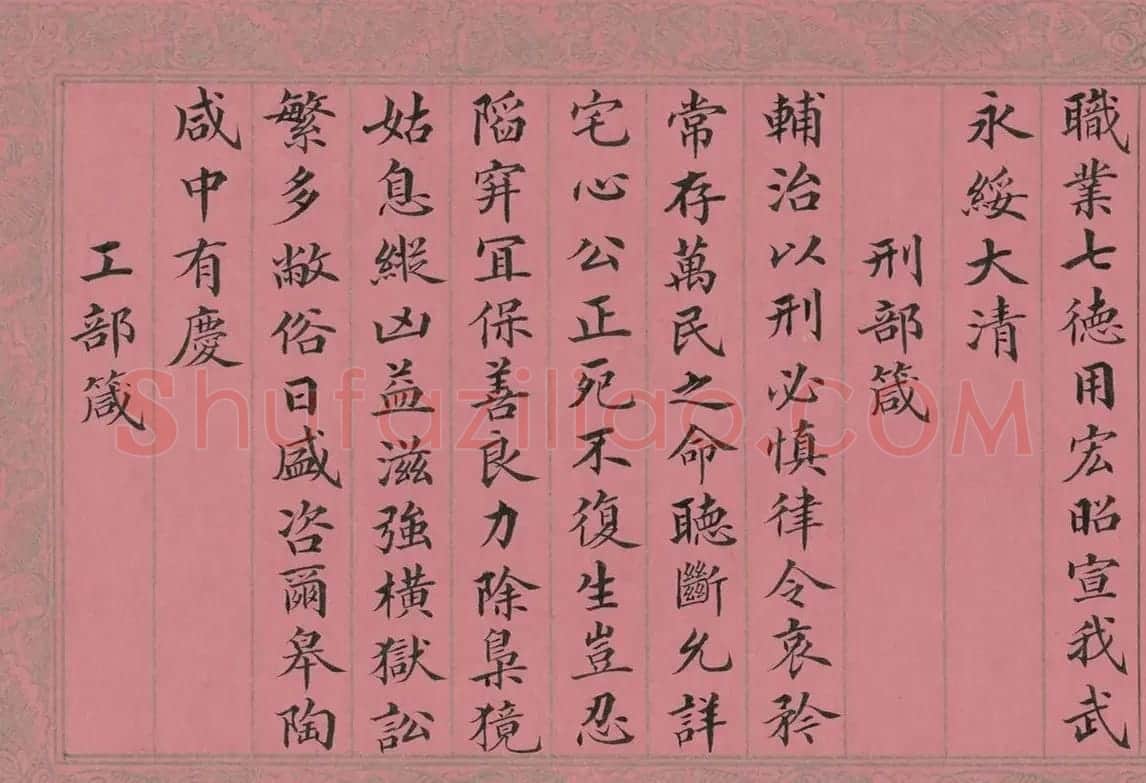 職業七德用宏昭宣我武
永綏大清
刑部箴
輔治以刑必慎律令哀矜
常存萬民之命聽斷允詳
宅心公正死不復生豈忍
陷穽冝保善良力除梟獍
姑息縱凶益滋強橫獄訟
繁多敝俗日盛咨爾皋陶
咸中有慶
工部箴
Shufaziliao.COM